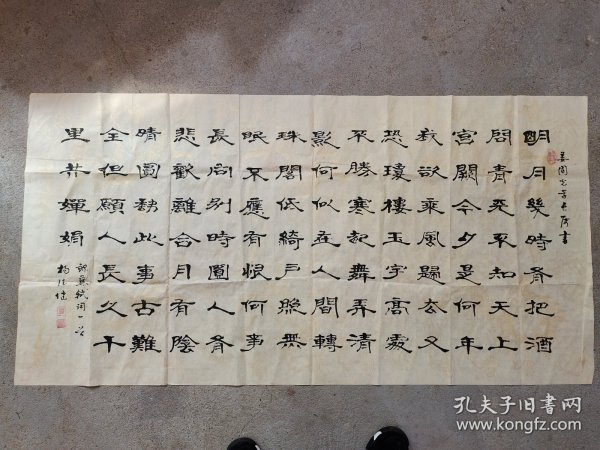 明月幾時有把酒
問青天不知天上
宮闕今夕是何年
我欲乘風歸去又
恐瓊樓玉宇高處
不勝寒起舞弄清
影何似在人間轉
珠閣低綺戶照無
眠不應有恨何事
長向別時圓人有
悲歡離合月有陰
晴圓缺此事古難
全但願人長久千
里共嬋娟
蘇軾詞一首
孔夫子旧书网
www.kongfz.com